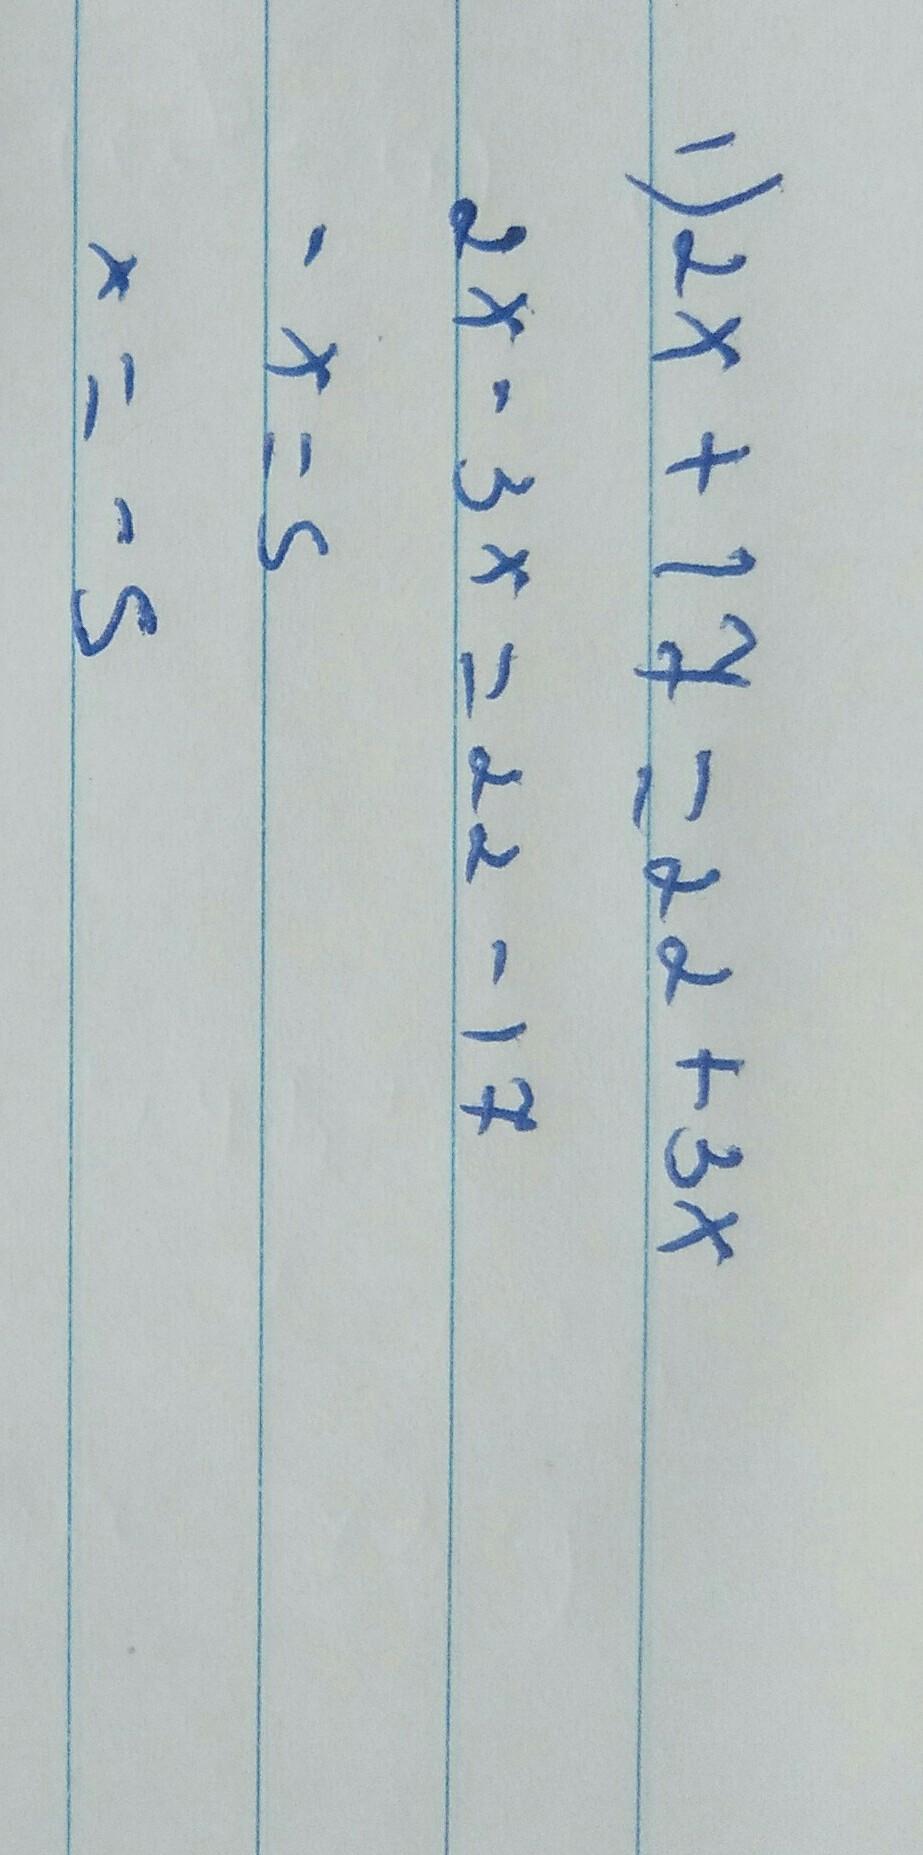 1) 2x + 17 = 22 + 3x
2x - 3x = 22 - 17
- x = 5
x = - 5